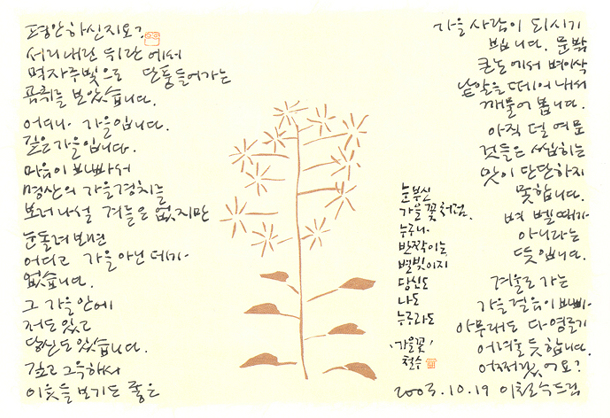 평안하신지요?
서리 내린 뒤란에서
먹자주빛으로 단풍들어가는
곰취를 보았습니다.
어디나 가을입니다.
깊은 가을입니다.
마음이 바빠서
명산의 가을경치를
보러 나설 겨를은 없지만
눈돌려 보면
어디고 가을 아닌 데가
없습니다.
그 가을 안에
저도 있고
당신도 있습니다.
깊고 그윽하셔
이웃들 보기도 좋은
가을 사람이 되시기
빕니다. 문밖
큰논에서 벼이삭
낱알을 떼어내서
깨물어 봅니다.
아직 덜 여문
것들은 씹히는
맛이 단단하지
못합니다.
벼 벨 때가
아니라는
뜻입니다.
겨울로 가는
가을걸음이 바빠
아무래도 다 영글기
어려울 듯합니다.
어쩌겠어요?
2003.10.19 이철수드림
눈부신
가을꽃처럼.
누구나
반짝이는
별빛이지
당신도
나도
누구라도
'가을꽃'
철수